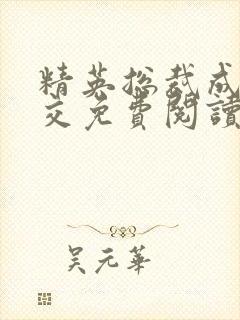 精英总裁成
交免費閱讀
吴元華